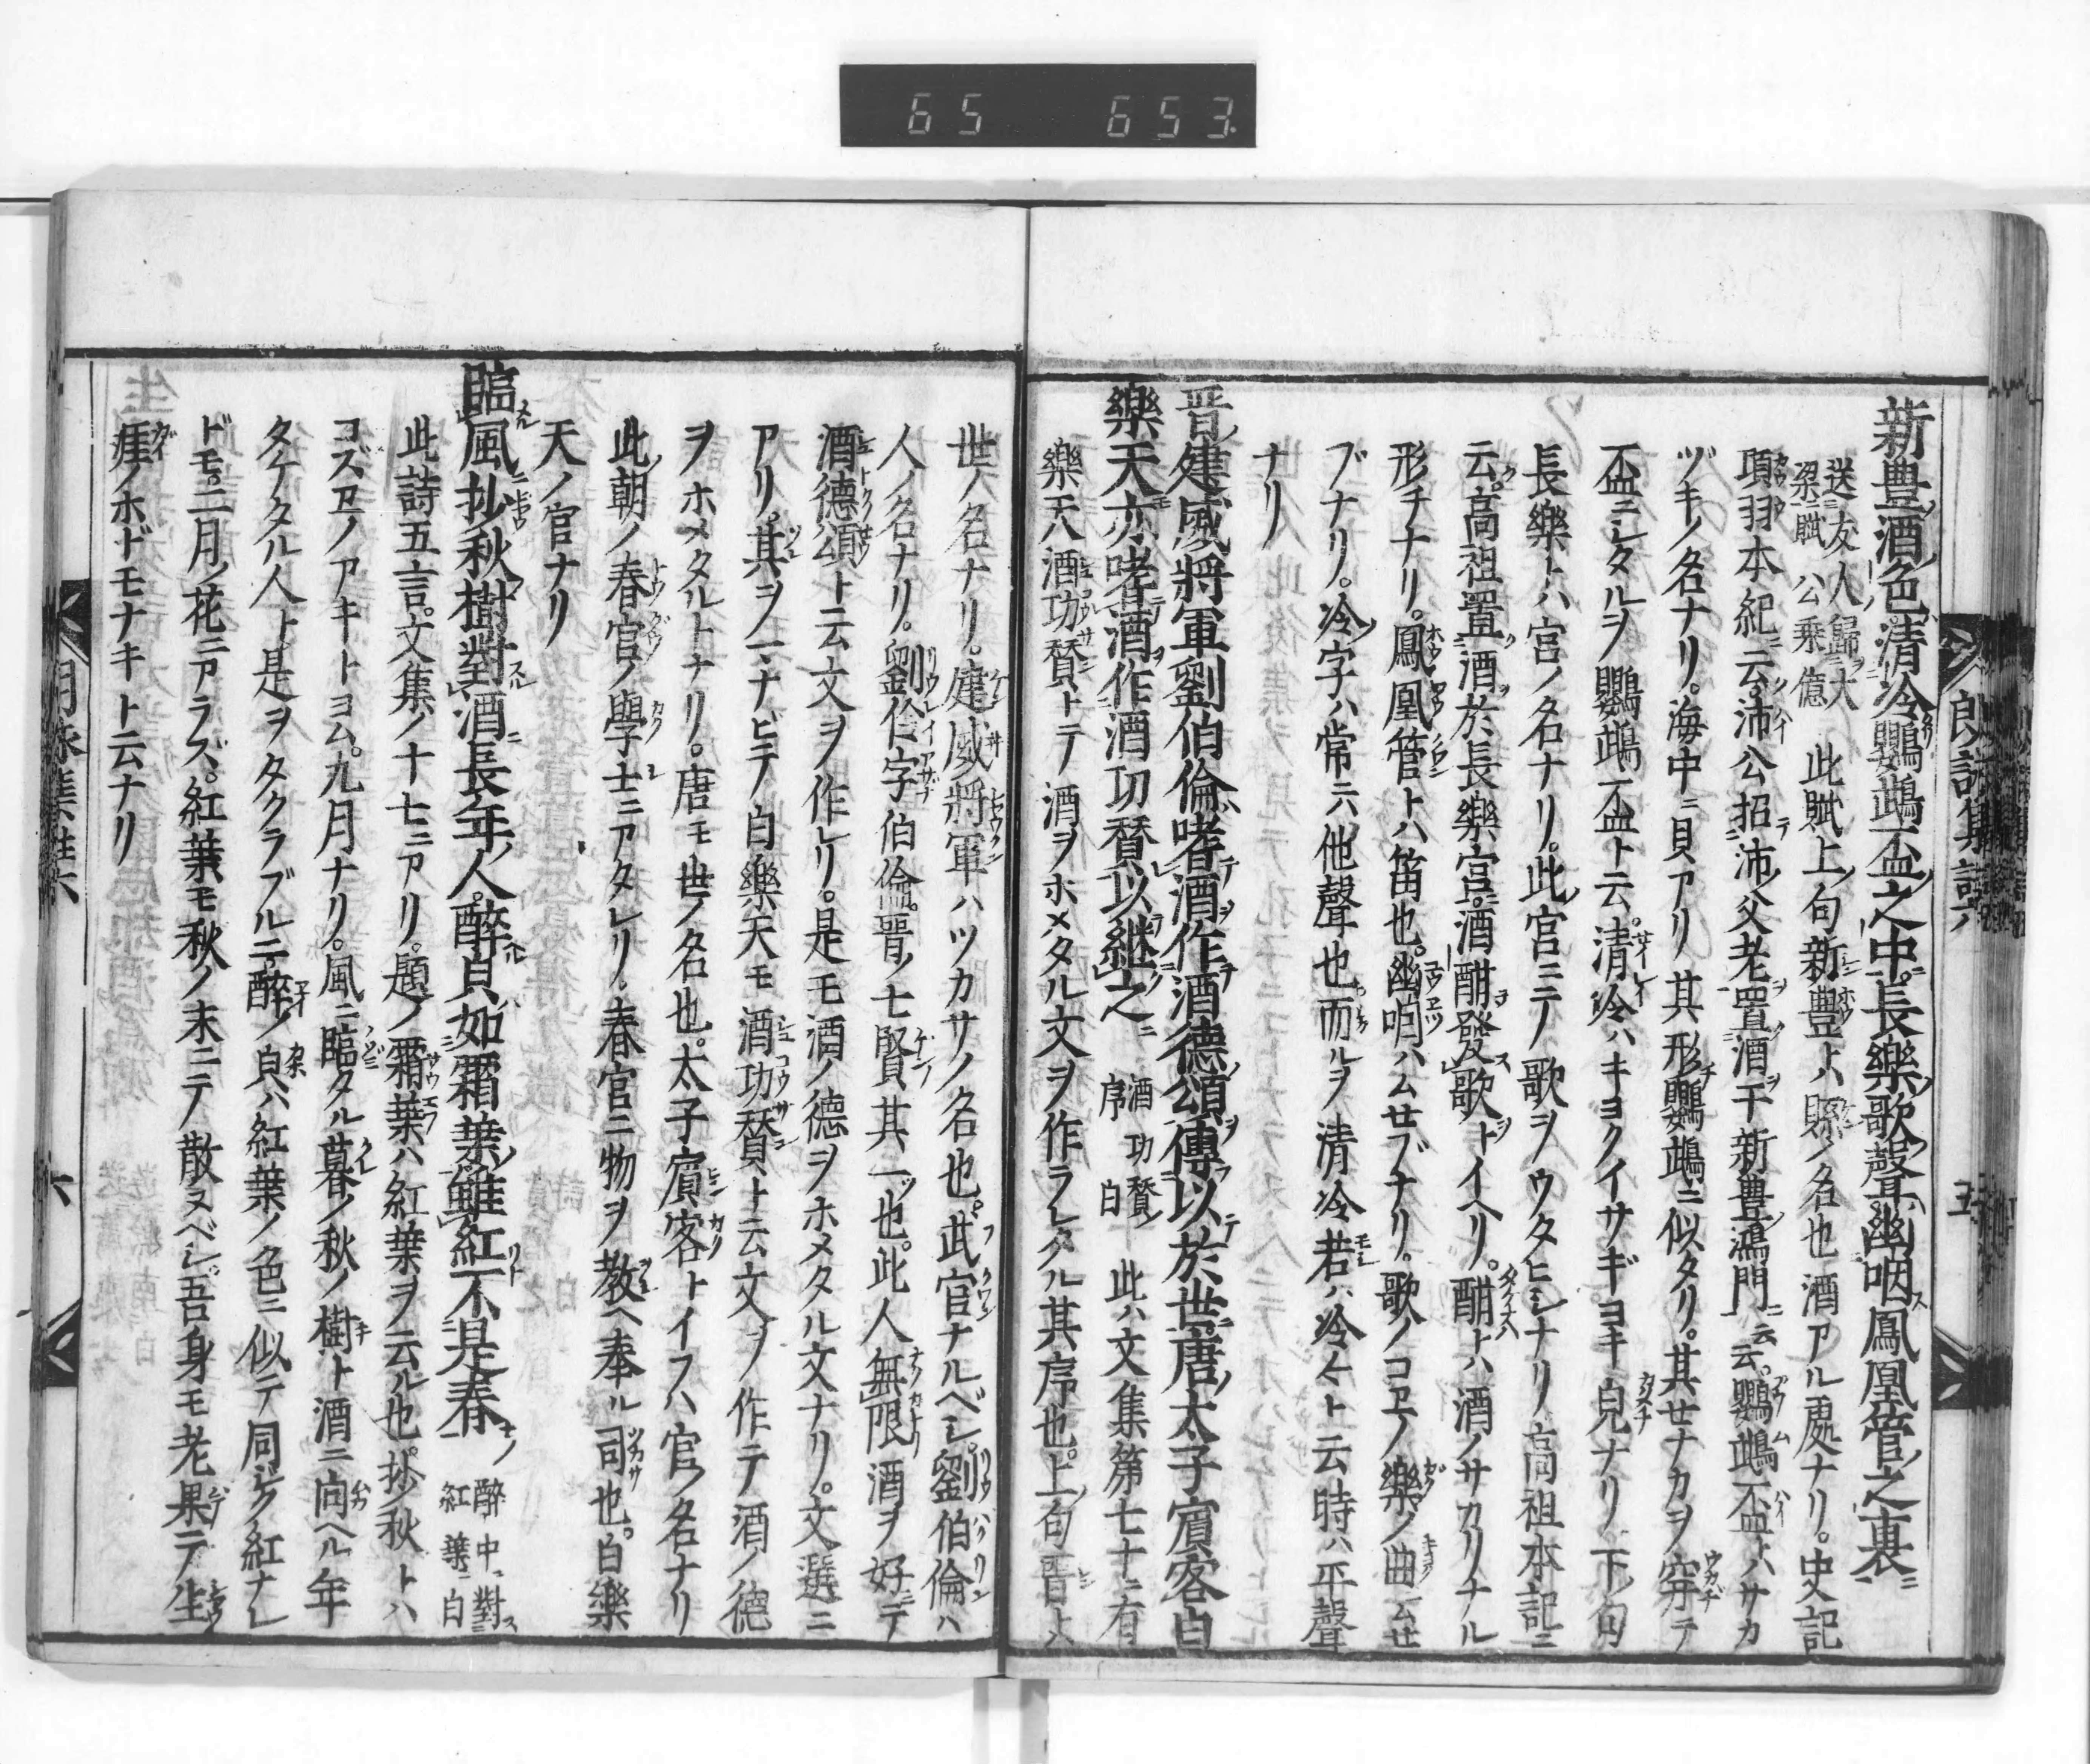 65 653
朗詠集註六
五
新豊酒色清冷鸚鵡盃之中長樂歌聲幽咽鳳凰管之裏
送友人歸大
梁賦 公乘億
此賦上句新豊トハ縣ノ名也酒アル処ナリ。史記
項羽本紀ニ云沛公招沛父老置酒于新豊鴻門云云。鸚鵡盃トハサカ
ヅキノ名ナリ。海中ニ貝アリ其形チ鸚鵡ニ似タリ。其セナカヲ穿テ
盃ニシタルヲ鸚鵡盃ト云。清冷ハキヨクイサギヨキ皃ナリ下句
長樂トハ宮ノ名ナリ。此宮ニテ歌ヲウタヒシナリ高祖本記ニ
云。高祖置酒於長樂宮。酒酣發歌トイヘリ。酣トハ酒ノサカリナル
形チナリ。鳳凰管トハ笛也。幽咽ハムセブナリ。歌ノコヱノ樂ノ曲ニムセ
ブナリ。冷字ハ常ニハ他聲也而ルヲ清冷若ハ冷々ト云時ハ平聲
ナリ
晋建威將軍劉伯倫嗜酒作酒德頌傳以於世唐太子賓客白
樂天亦嗜酒作酒功賛以継之
酒功賛
序 白
此ハ文集第七十ニ有
樂天酒功賛トテ酒ヲホメタル文ヲ作ラレタル其序也。上句晋トハ
世ノ名ナリ。建威將軍ハツカサノ名也。武官ナルベシ。劉伯倫ハ
人ノ名ナリ。劉伶字伯倫。晋ノ七賢其一ッ也。此人無限酒ヲ好ニテ
酒德頌ト云文ヲ作レリ。是モ酒ノ德ヲホメタル文ナリ。文選ニ
アリ。其ヲツ一ナビテ白樂天モ酒功賛ト云文ヲ作テ酒ノ德
ヲホメタルトナリ。唐モ世ノ名也。太子賓客トイフハ官ノ名ナリ
此朝ノ春官ノ學士ニアタレリ。春官ニ物ヲ教ヘ奉ル司也。白樂
天ノ官ナリ
臨風抄秋樹對酒長年人。醉皃如霜葉雖紅不是春
醉中對
紅葉 白
此詩五言。文集ノ十七ニアリ。題ノ霜葉ハ紅葉ヲ云ル也抄秋トハ
コズヱノアキトヨム。九月ナリ。風ニ臨タル暮ノ秋ノ樹ト酒ニ向ヘル年
タケタル人ト是ヲタクラブルニ醉ノ皃ハ紅葉ノ色ニ似テ同ジク紅ナレ
ドモ。二月ノ花ニアラズ。紅葉モ秋ノ末ニテノ散ヌベシ。吾身モ老果テ生
涯ノホドモナキト云ナリ
朗詠集註六
六